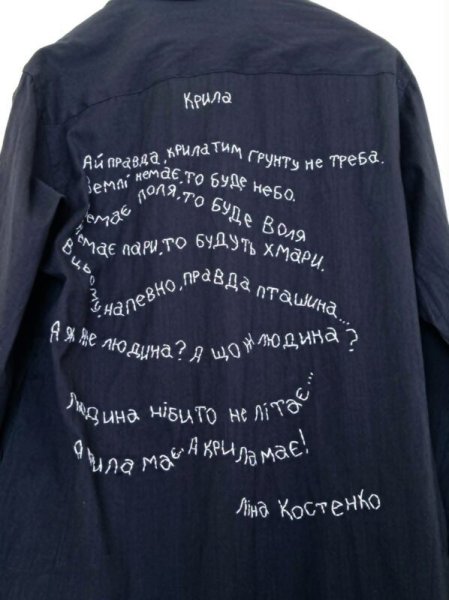 Крила
Ай правда, крилатим ґрунту не треба.
Землі немає, то буде небо.
Немає поля, то буде воля
Немає пари, то будуть хмари.
В цьому, напевно, правда пташина...
А як же людина? А що ж людина?
Людина нібито не літає...
А крила має. А крила має!
Ліна Костенко